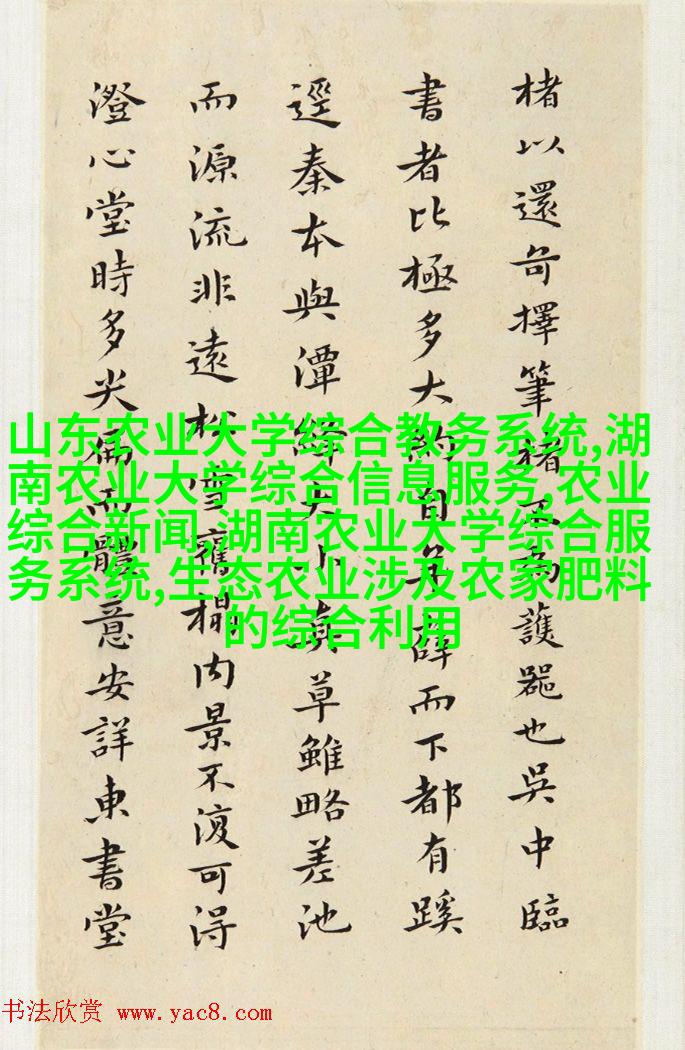 楮以還奇擇筆楮不為護器也吳中臨
書者比極多大約自薛而下都有蹊
逕秦本與潭絳大小真草雖略差池
而源流非遠松雪舊榻内景不復可得
澄心堂時多尖偏而體意安詳東書堂
山东农业大学综合教务系统,湖
南农业大学综合信息服务,农业
综合新闻,湖南农业大学综合服
务系统,生态农业涉及农家肥料
的综合利用
书法欣赏 www.yac8.com